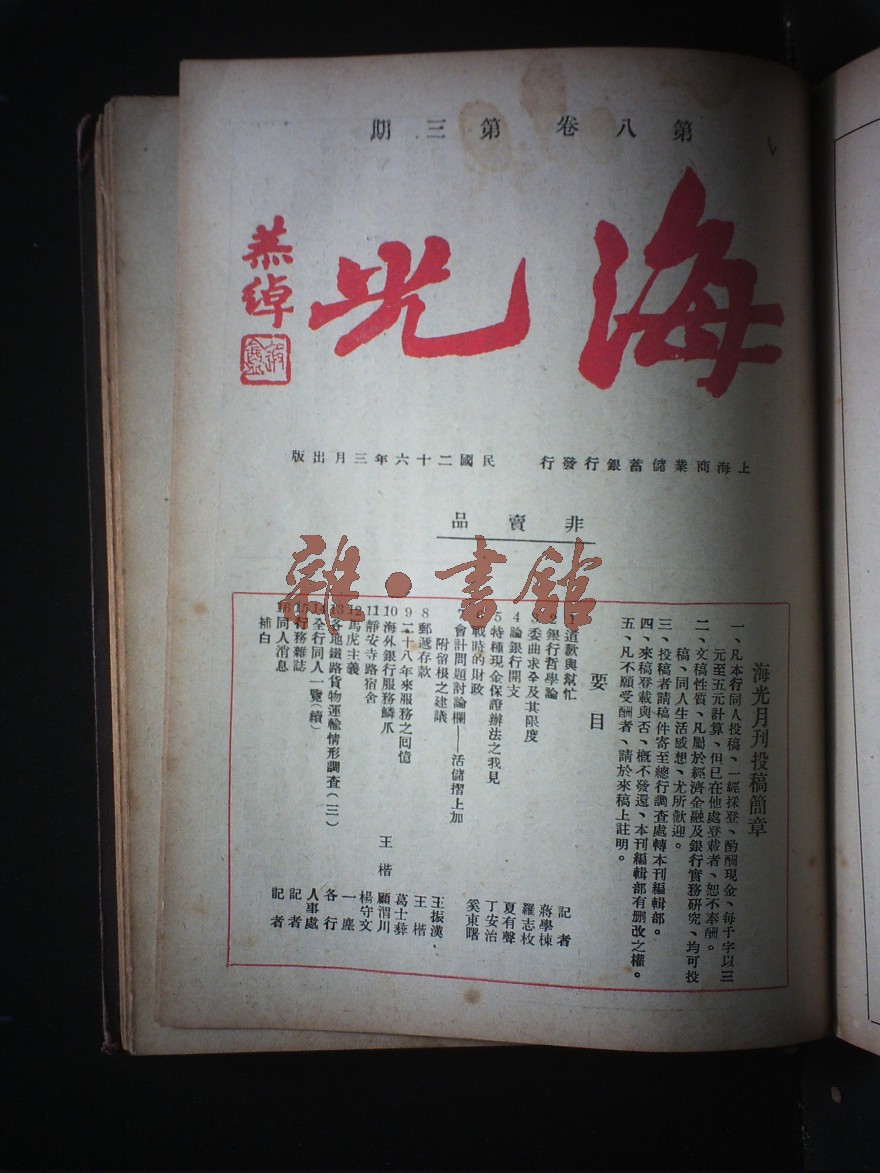 第八卷 第三期
海光
上海商業儲蓄銀行發行 民國二十六年三月出版
非賣品
雜·書館
海光月刊投稿簡章
一、凡本行同人投稿、一經採登、酌酬現金、每千字以三
元至五元計算、但已在他處登載者、恕不奉酬。
二、文稿性質、凡屬於經濟金融及銀行實務研究、均可投
稿、同人生活感想、尤所歡迎。
三、投稿者請稿件寄至總行調查處轉本刊編輯部。
四、來稿登載與否、概不發還、本刊編輯部有刪改之權。
五、凡不願受酬者、請於來稿上註明。
要目
1 道歉與幫忙 記者
2 銀行哲學論 蔣學棟
3 委曲求全及其限度 羅志枚
4 論銀行開支 夏有聲
5 特種現金保證辦法之我見 丁安治
戰時的財政 奚東曙
會計問題討論欄——活儲摺上加
附留根之建議 王振漢、王楷
8 郵遞存款 王楷
9 二十八年來服務之回憶 葛士彝
10 海外銀行服務鱗爪 顧渭川
11 靜安寺路宿舍 楊守文
12 馬虎主義 一塵
13 各地鐵路貨物運輸情形調查(三) 各行
14 全行同人一覽(續) 人事處
15 行務雜誌 記者
16 同人消息 記者
補白